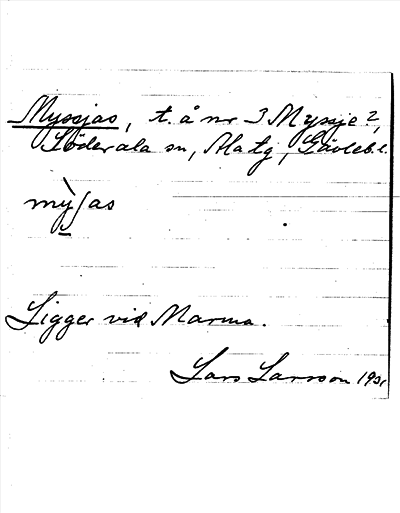 Myssjas, t. å nr 3 Myssje 2,
Söderala sn, Ala tg, Gävleb. l.
mỳʃas
Ligger vid Marma.
Lars Larsson